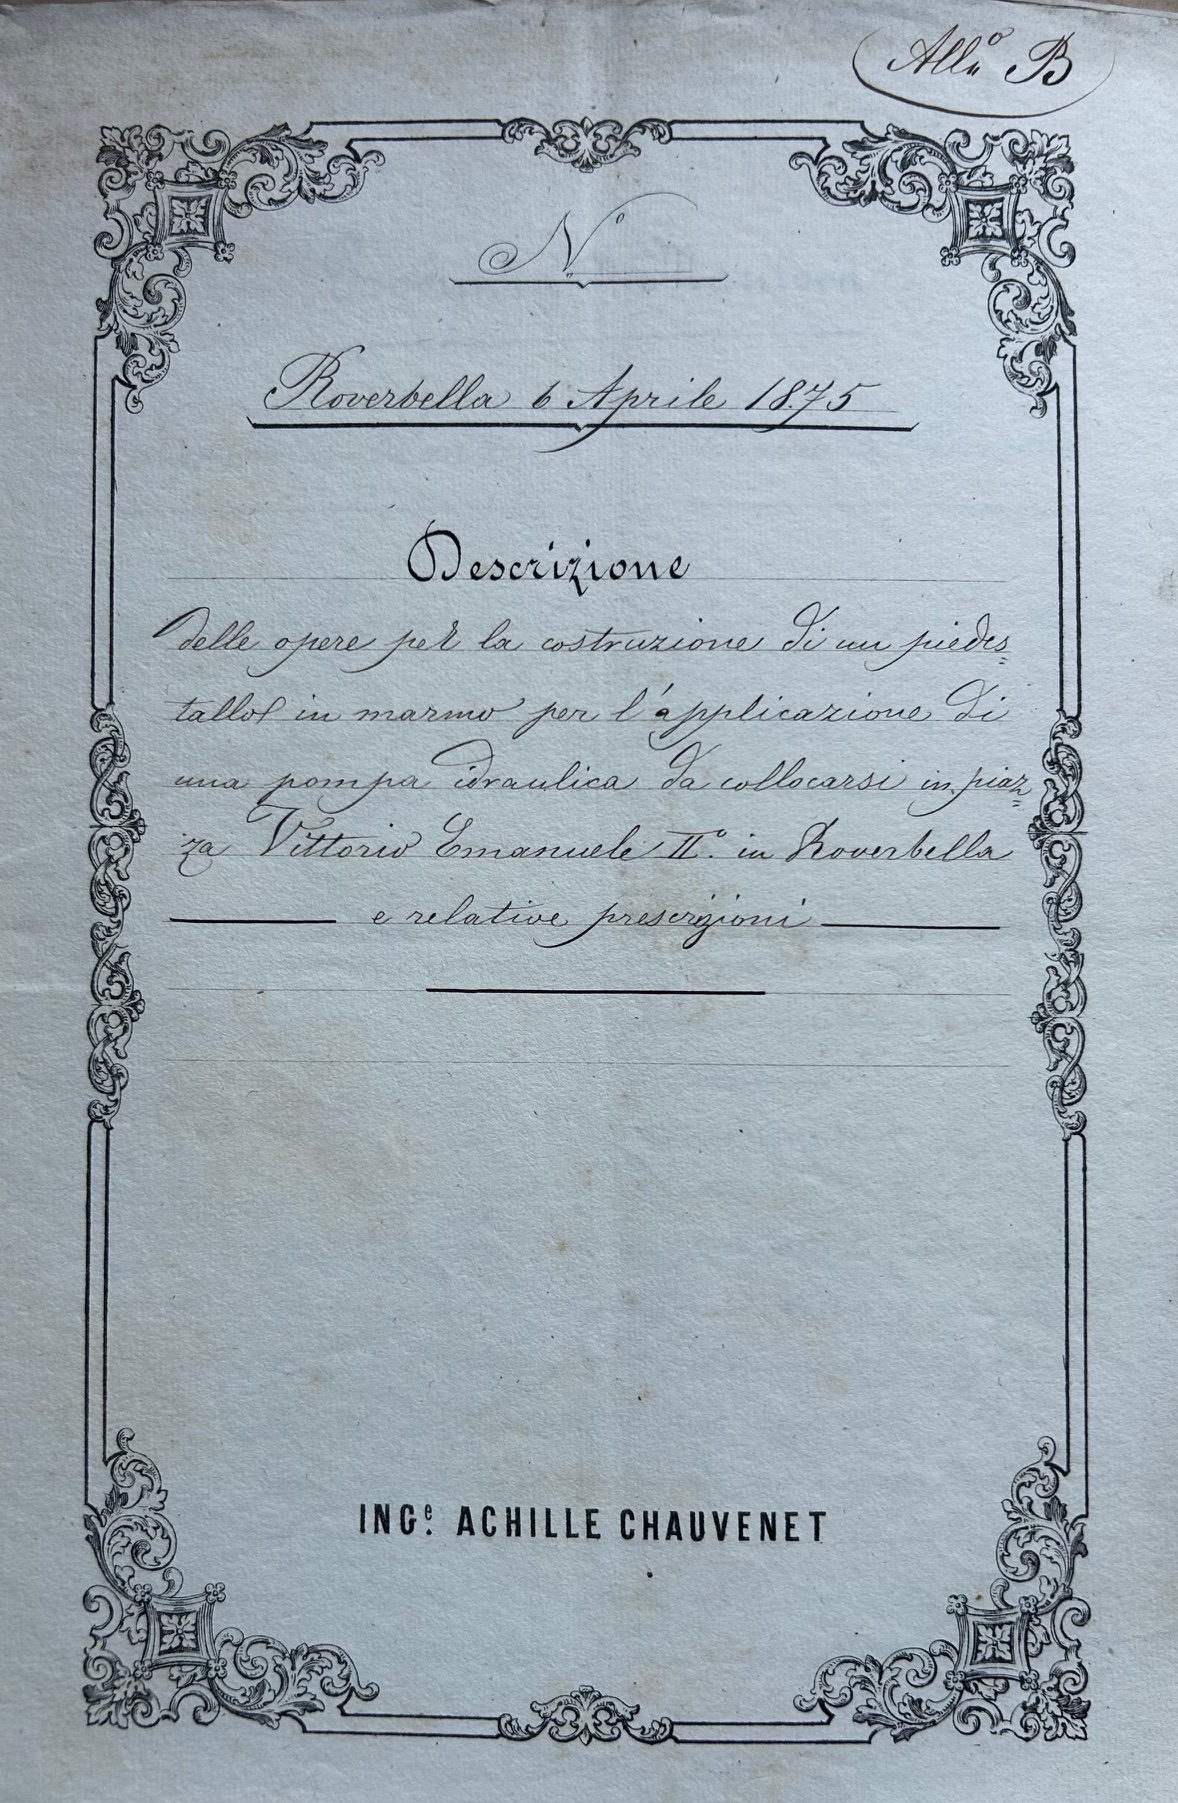 All.º B
N.º
Roverbella 6 Aprile 1875
Descrizione
delle opere per la costruzione di un piedes=
tallo in marmo per l'applicazione di
una pompa idraulica da collocarsi in piaz=
za Vittorio Emanuele IIº. in Roverbella
e relative prescrizioni
INGe. ACHILLE CHAUVENET